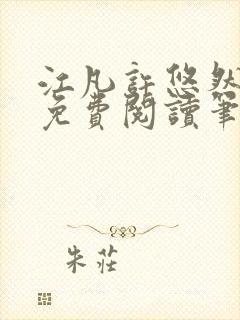 江凡許悠然
免費閱讀筆
朱莊